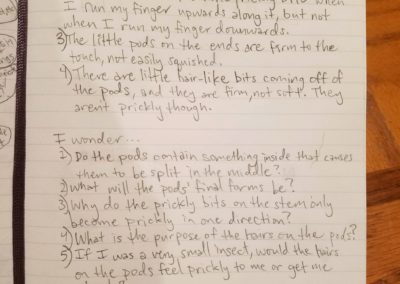 I run my finger upwards along it, but not
when I run my finger downwards.
3) The little pods on the ends are firm to the
touch, not easily squished.
4) There are little hair-like bits coming off of
the pods, and they are firm, not soft. They
arent prickly though.
I wonder...
1) Do the pods contain something inside that causes
them to be split in the middle?
2) What will the pods' final forms be?
3) Why do the prickly bits on the stem only
become prickly in one direction?
4) What is the purpose of the hairs on the pods?
5) If I was a very small insect, would the hairs
on the pods feel prickly to me or get me